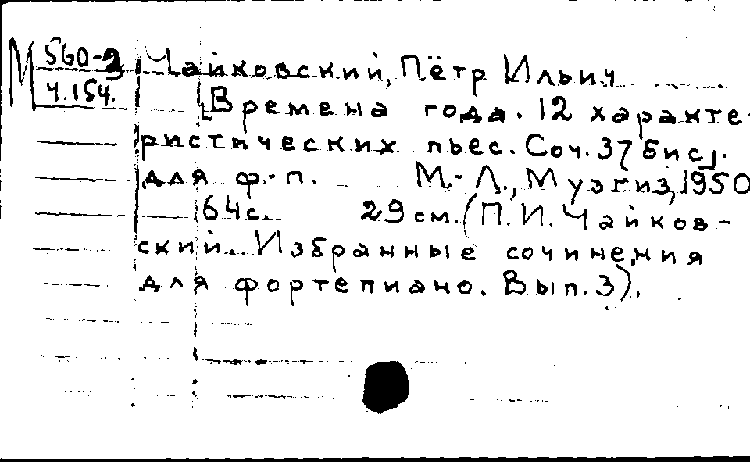 М 560-2
Ч.154.
Чайковский, Пётр Ильич
Времена года. 12 характе-
ристических пьес. Соч. 37[бис].
для ф.-п. М.-Л., Музгиз, 1950
64с. 29см. (П.И. Чайков-
ский. Избранные сочинения
для фортепиано. Вып. 3).